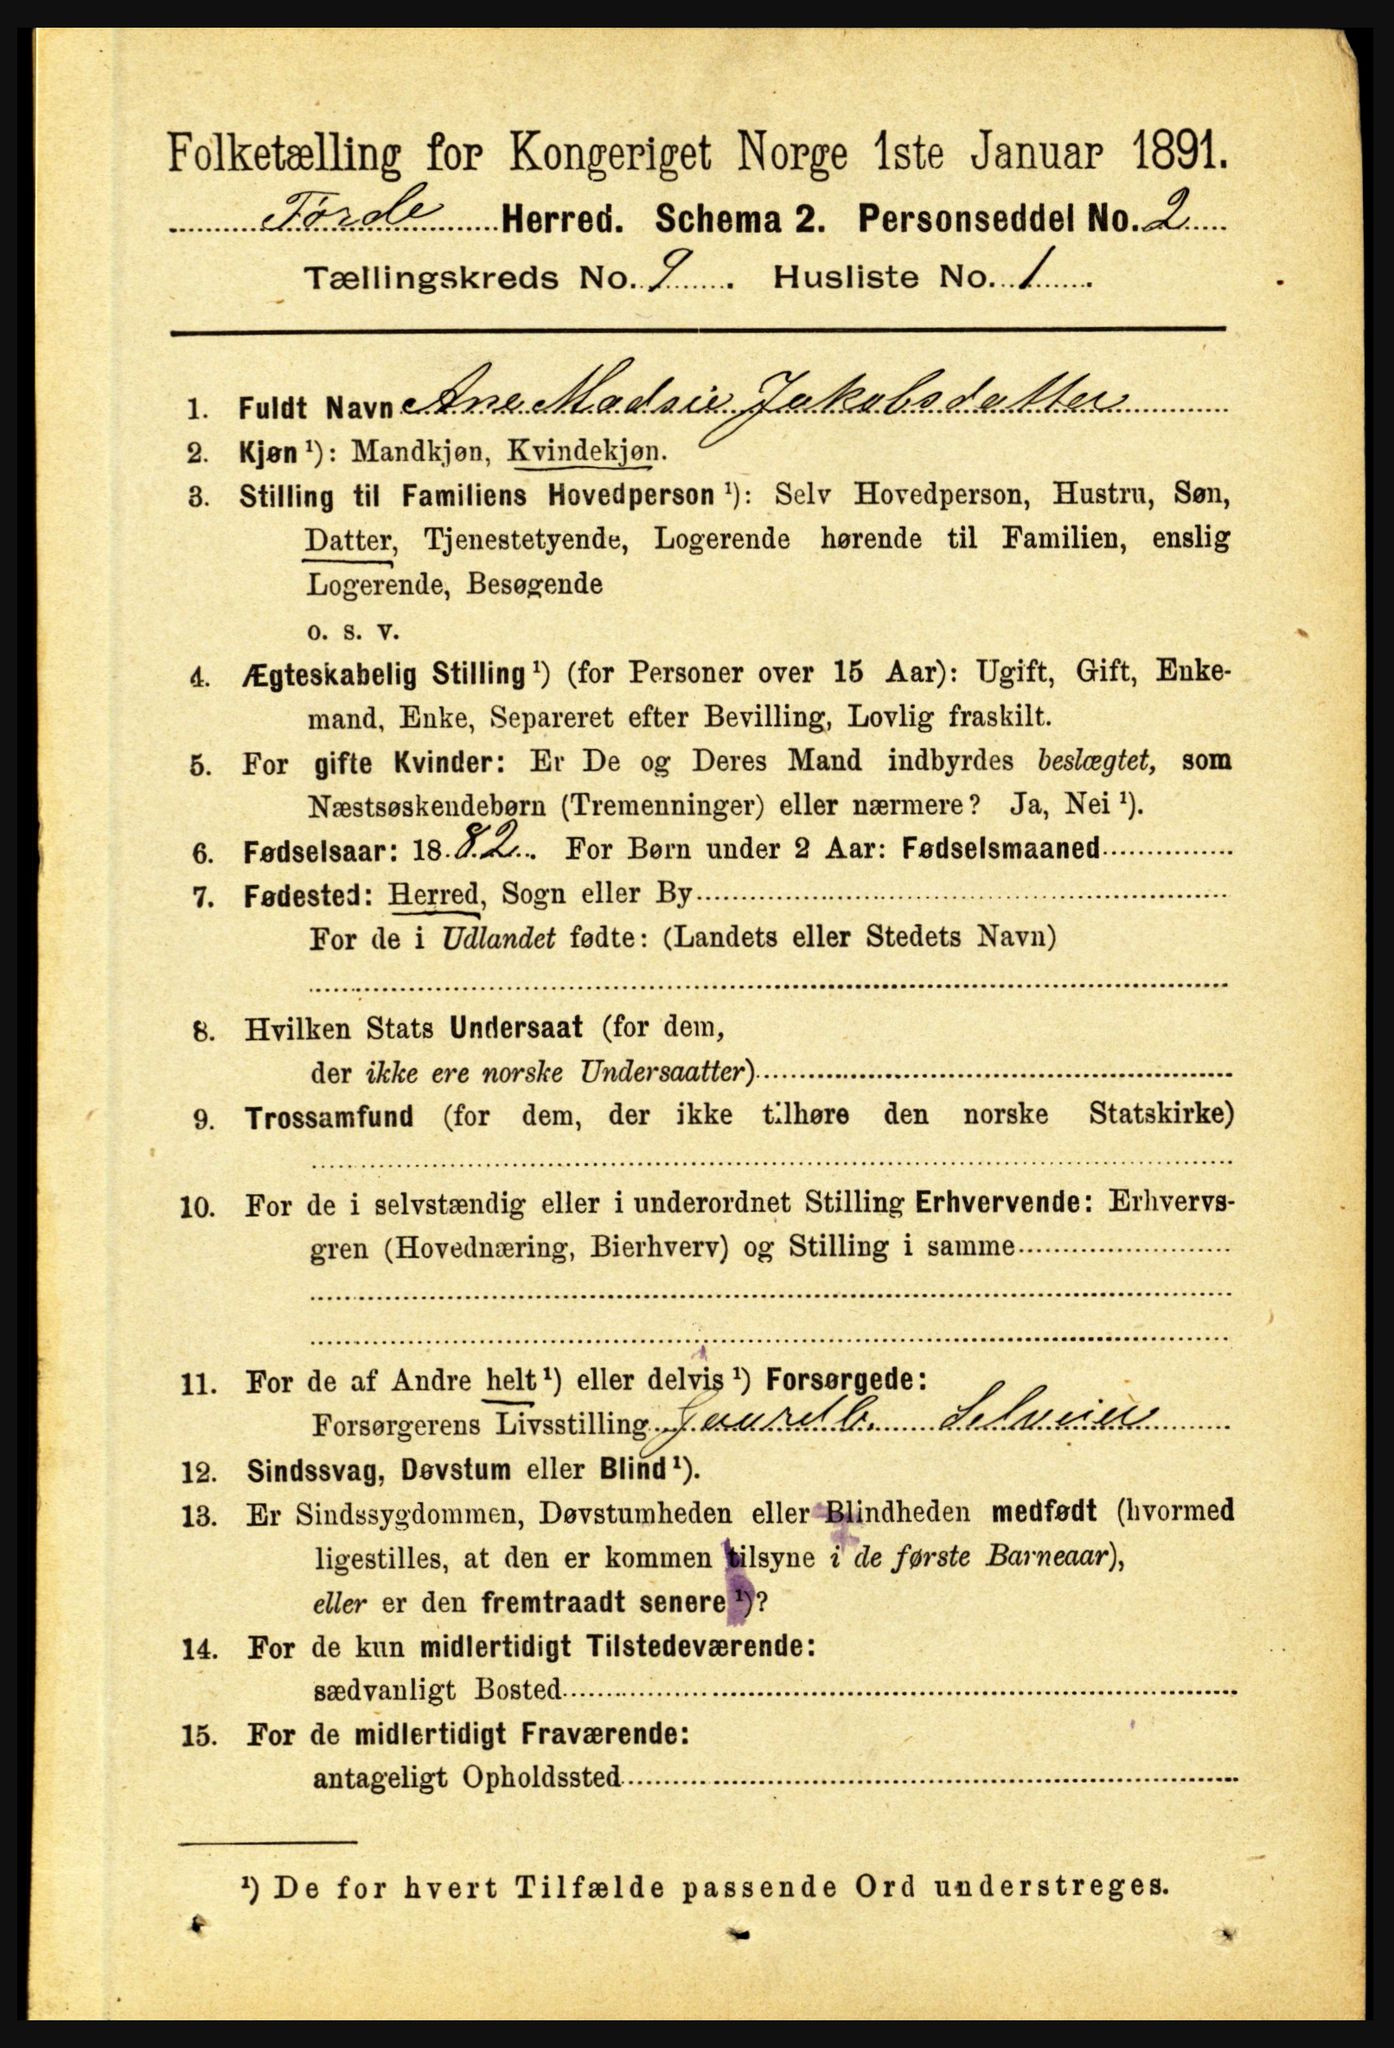 Folketælling for Kongeriget Norge 1ste Januar 1891.
Førde Herred. Schema 2. Personseddel No. 2
Tællingskreds No. 9. Husliste No. 1.
1. Fuldt Navn Ane Madsie Jakobsdatter
2. Kjøn ¹): Mandkjøn, Kvindekjøn.
3. Stilling til Familiens Hovedperson ¹): Selv Hovedperson, Hustru, Søn,
Datter, Tjenestetyende, Logerende hørende til Familien, enslig
Logerende, Besøgende
o. s. v.
4. Ægteskabelig Stilling ¹) (for Personer over 15 Aar): Ugift, Gift, Enke-
mand, Enke, Separeret efter Bevilling, Lovlig fraskilt.
5. For gifte Kvinder: Er De og Deres Mand indbyrdes beslægtet, som
Næstsøskendebørn (Tremenninger) eller nærmere? Ja, Nei ¹).
6. Fødselsaar: 1882. For Børn under 2 Aar: Fødselsmaaned
7. Fødested: Herred, Sogn eller By
For de i Udlandet fødte: (Landets eller Stedets Navn)
8. Hvilken Stats Undersaat (for dem,
der ikke ere norske Undersaatter)
9. Trossamfund (for dem, der ikke tilhøre den norske Statskirke)
10. For de i selvstændig eller i underordnet Stilling Erhvervende: Erhvervs-
gren (Hovednæring, Bierhverv) og Stilling i samme
11. For de af Andre helt ¹) eller delvis ¹) Forsørgede:
Forsørgerens Livsstilling Gaardb. Selveier
12. Sindssvag, Døvstum eller Blind ¹).
13. Er Sindssygdommen, Døvstumheden eller Blindheden medfødt (hvormed
ligestilles, at den er kommen tilsyne i de første Barneaar),
eller er den fremtraadt senere ¹)?
14. For de kun midlertidigt Tilstedeværende:
sædvanligt Bosted
15. For de midlertidigt Fraværende:
antageligt Opholdssted
¹) De for hvert Tilfælde passende Ord understreges.